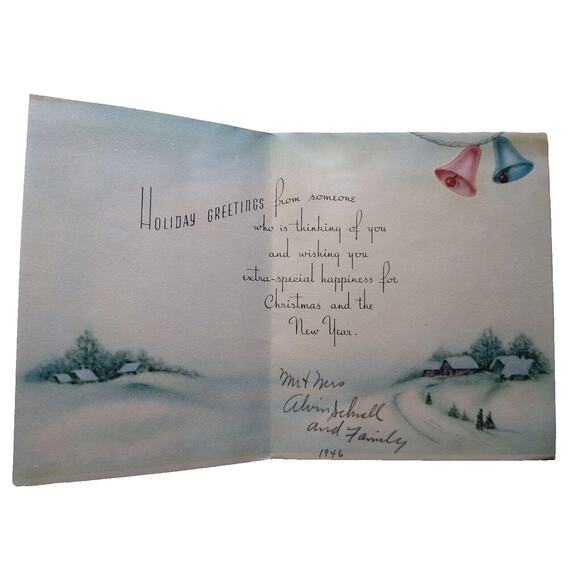 HOLIDAY GREETINGS from someone
who is thinking of you
and wishing you
extra-special happiness for
Christmas and the
New Year.
Mr & Mrs
Alvin Schnell
and Family
1946